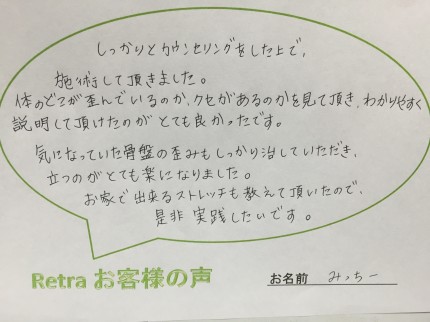 しっかりとカウンセリングをした上で、
施術して頂きました。
体のどこが歪んでいるのか、クセがあるのかを見て頂き、わかりやすく
説明して頂けたのがとても良かったです。
気になっていた骨盤の歪みもしっかり治していただき、
立つのがとても楽になりました。
お家で出来るストレッチも教えて頂いたので、
是非実践したいです。
Retra お客様の声
お名前 みっちー